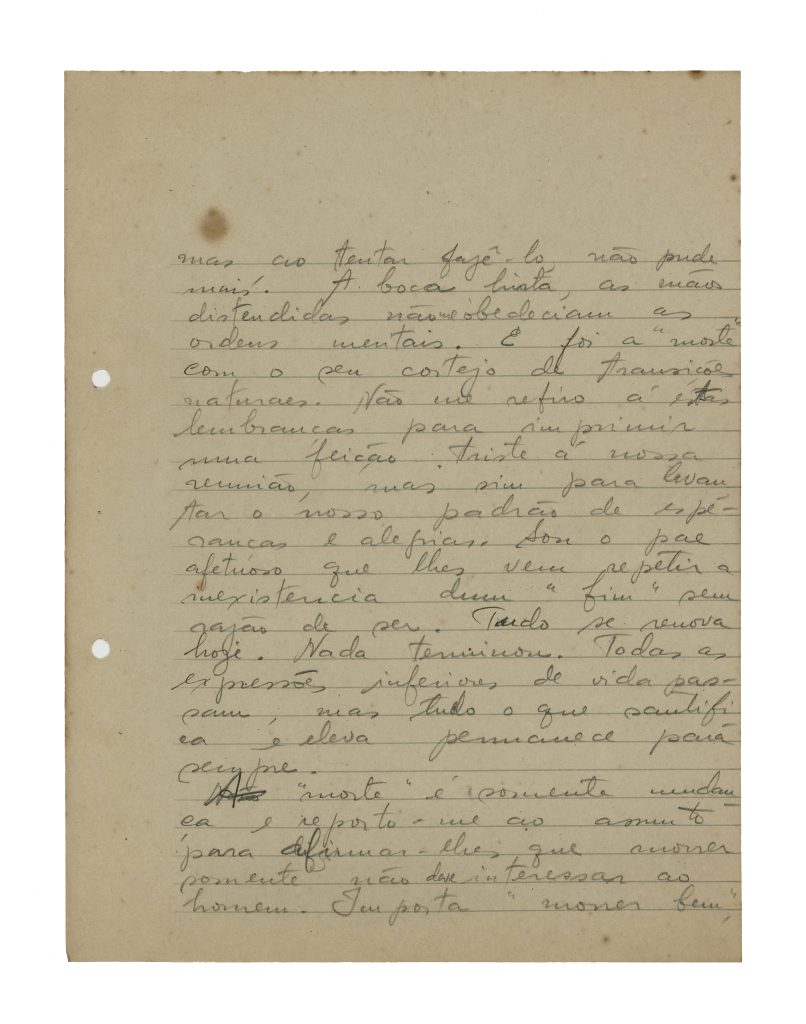 mas ao tentar fazê-lo, não pude
mais. A boca hirta, as mãos
distendidas não me obedeciam as
ordens mentais. E foi a "morte"
com o seu cortejo de transições
naturaes. Não me refiro á éstas
lembrancas para imprimir
uma feição triste á nossa
reunião, mas sim para levan
tar o nosso padrão de espe-
rancas e alegrias. Sou o pae
afetuoso que lhes vem repetir a
inexistencia dum "fim" sem
razão de ser. Tudo se renova
hoje. Nada terminou. Todas as
expressões inferiores de vida pas-
sam, mas tudo o que santifi
ca e eleva permanece para
sempre.
A "morte" é somente mudan
ca e reporto-me ao assunto
para afirmar-lhes que morrer
somente não deve interessar ao
homem. Importa "morrer bem",